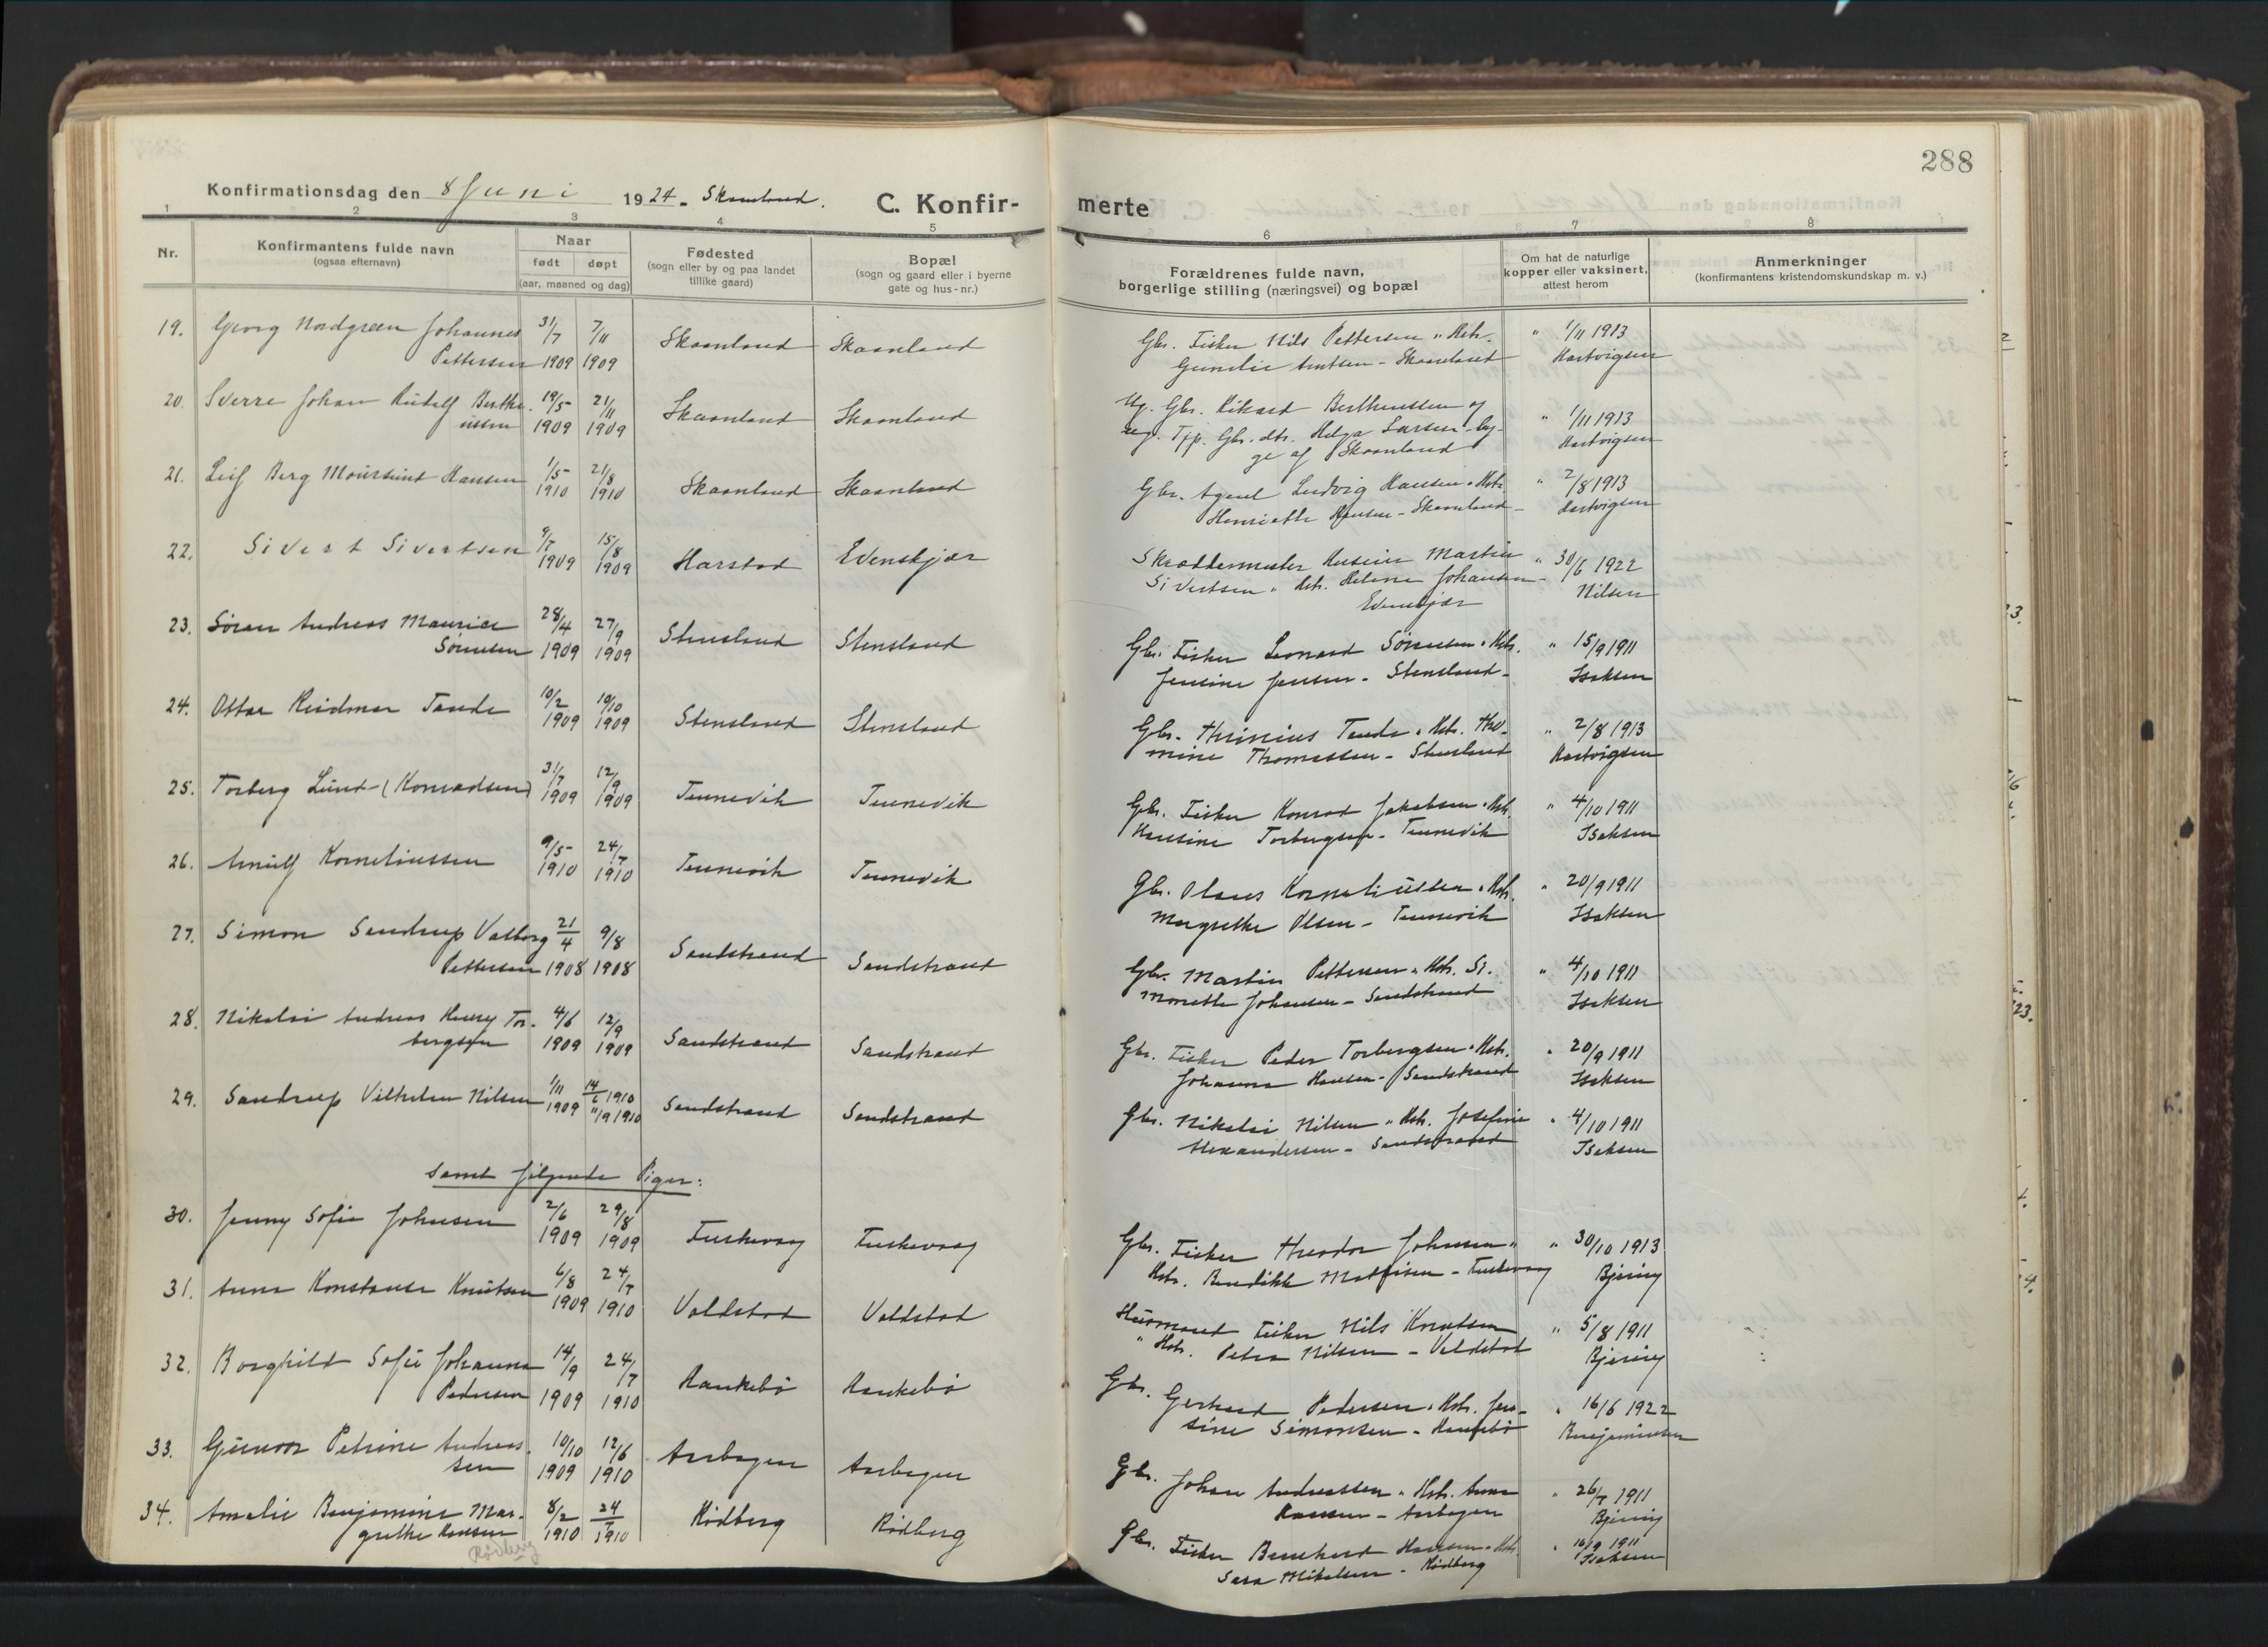 288
Konfirmationsdag den 8 Juni 1924 - Skaanland.
C. Konfirmerte
1 2 3 4 5 6 7 8
Nr.
Konfirmantens fulde navn
(ogsaa efternavn)
Naar
født døpt
(aar, maaned og dag)
Fødested
(sogn eller by og paa landet
tillike gaard)
Bopæl
(sogn og gaard eller i byerne
gate og hus-nr.)
Forældrenes fulde navn,
borgerlige stilling (næringsvei) og bopæl
Om hat de naturlige
kopper eller vaksinert,
attest herom
Anmerkninger
(konfirmantens kristendomskundskap m. v.)
19. Georg Nordgreen Johannes 31/7 7/11 Skaanland Skaanland Gbr. Fisker Nils Pettersen " Hstr. " 1/11 1913
Pettersen 1909 1909 Gunelie Arntsen - Skaanland Hartvigsen
20. Sverre Johan Rudolf Berthe- 19/5 21/11 Skaanland Skaanland Ug. Gbr. Rikard Bertheussen og " 1/11 1913
ussen 1909 1909 ug. Tjp. Gbr. dtr. Helga Larsen - beg- Hartvigsen
ge af Skaanland
21. Leif Berg Moursund Hansen 1/5 21/8 Skaanland Skaanland Gbr. Agent Ludvig Hansen " Hstr. " 2/8 1913
1910 1910 Henriette Hansen - Skaanland - Hartvigsen
22. Sivert Sivertsen 9/7 15/8 Harstad Evenskjær Skræddermester Martin " 30/6 1922
1909 1909 Sivertsen " Hstr. Helene Johansen - Nilsen
Evenskjær
23. Søren Andreas Maurice 28/4 27/9 Stensland Stensland Gbr. Fisker Leonard Sørensen " Hstr. " 15/9 1911
Sørensen 1909 1909 Jensine Jensen - Stensland - Isaksen
24. Ottar Reidmar Tande 10/2 10/10 Stensland Stensland Gbr. Tande " Hstr. Tho- " 2/8 1913
1909 1909 mine Thomassen - Stensland Hartvigsen
25. Torberg Lund - (Konradsen) 31/7 12/9 Tennevik Tennevik Gbr. Fisker Konrad Jakobsen " Hstr. " 4/10 1911
1909 1909 Hansine Torbergsen - Tennevik Isaksen
26. Arnulf Korneliussen 9/5 24/7 Tennevik Tennevik Gbr. Olaus Korneliussen " Hstr. " 20/9 1911
1910 1910 Margrethe Olsen - Tennevik Isaksen
27. Simon Sandrup Valborg 21/4 9/8 Sandstrand Sandstrand Gbr. Martin Pettersen " Hstr. Si- " 4/10 1911
Pettersen 1908 1908 monette Johansen - Sandstrand Isaksen
28. Nikolai Andreas Henry Tor- 4/6 12/9 Sandstrand Sandstrand Gbr. Fisker Peder Torbergsen " Hstr. " 20/9 1911
bergsen 1909 1909 Johanna Hansen - Sandstrand Isaksen
29. Sandrup Vilhelm Nilsen 1/11 14/6 1910 Sandstrand Sandstrand Gbr. Nikolai Nilsen " Hstr. Josefine " 4/10 1911
1909 11/9 1910 Alexandersen - Sandstrand Isaksen
samt følgende Piger:
30. Jenny Sofie Johnsen 2/6 29/8 Fuskevaag Fuskevaag Gbr. Fisker Theodor Johnsen " " 30/10 1913
1909 1909 Hstr. Benedikte Mathisen - Fuskevaag Bjering
31. Anna Konstanse Knutsen 6/8 24/7 Voldstad Voldstad Husmand Fisker Nils Knutsen " 5/8 1911
1909 1910 " Hstr. Petra Nilsen - Voldstad Bjering
32. Borghild Sofie Johanna 14/9 24/7 Raukebø Raukebø Gbr. Gerhard Pedersen " Hstr. Jen- " 16/6 1922
Pedersen 1909 1910 sine Simonsen - Raukebø Benjaminsen
33. Gunvor Petrine Andreas- 10/10 12/6 Aarbogen Aarbogen Gbr. Johan Andreassen " Hstr. Anna " 26/7 1911
sen 1909 1910 Hansen - Aarbogen Bjering
34. Amalie Benjamine Mar- 8/2 24/7 Rødberg Rødberg Gbr. Fisker Bernhard Hansen " Hstr. " 16/9 1911
grethe Hansen 1910 1910 Sara Mikalsen - Rødberg Isaksen
Rødberg